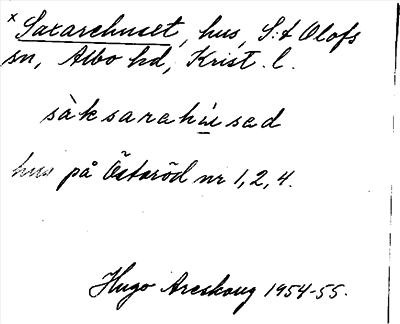 x Saxarehuset, hus, S:t Olofs
sn, Albo hd, Krist. l.
sàksarahù̲sed
hus på Östaröd nr 1, 2, 4.
Hugo Areskoug 1954-55.